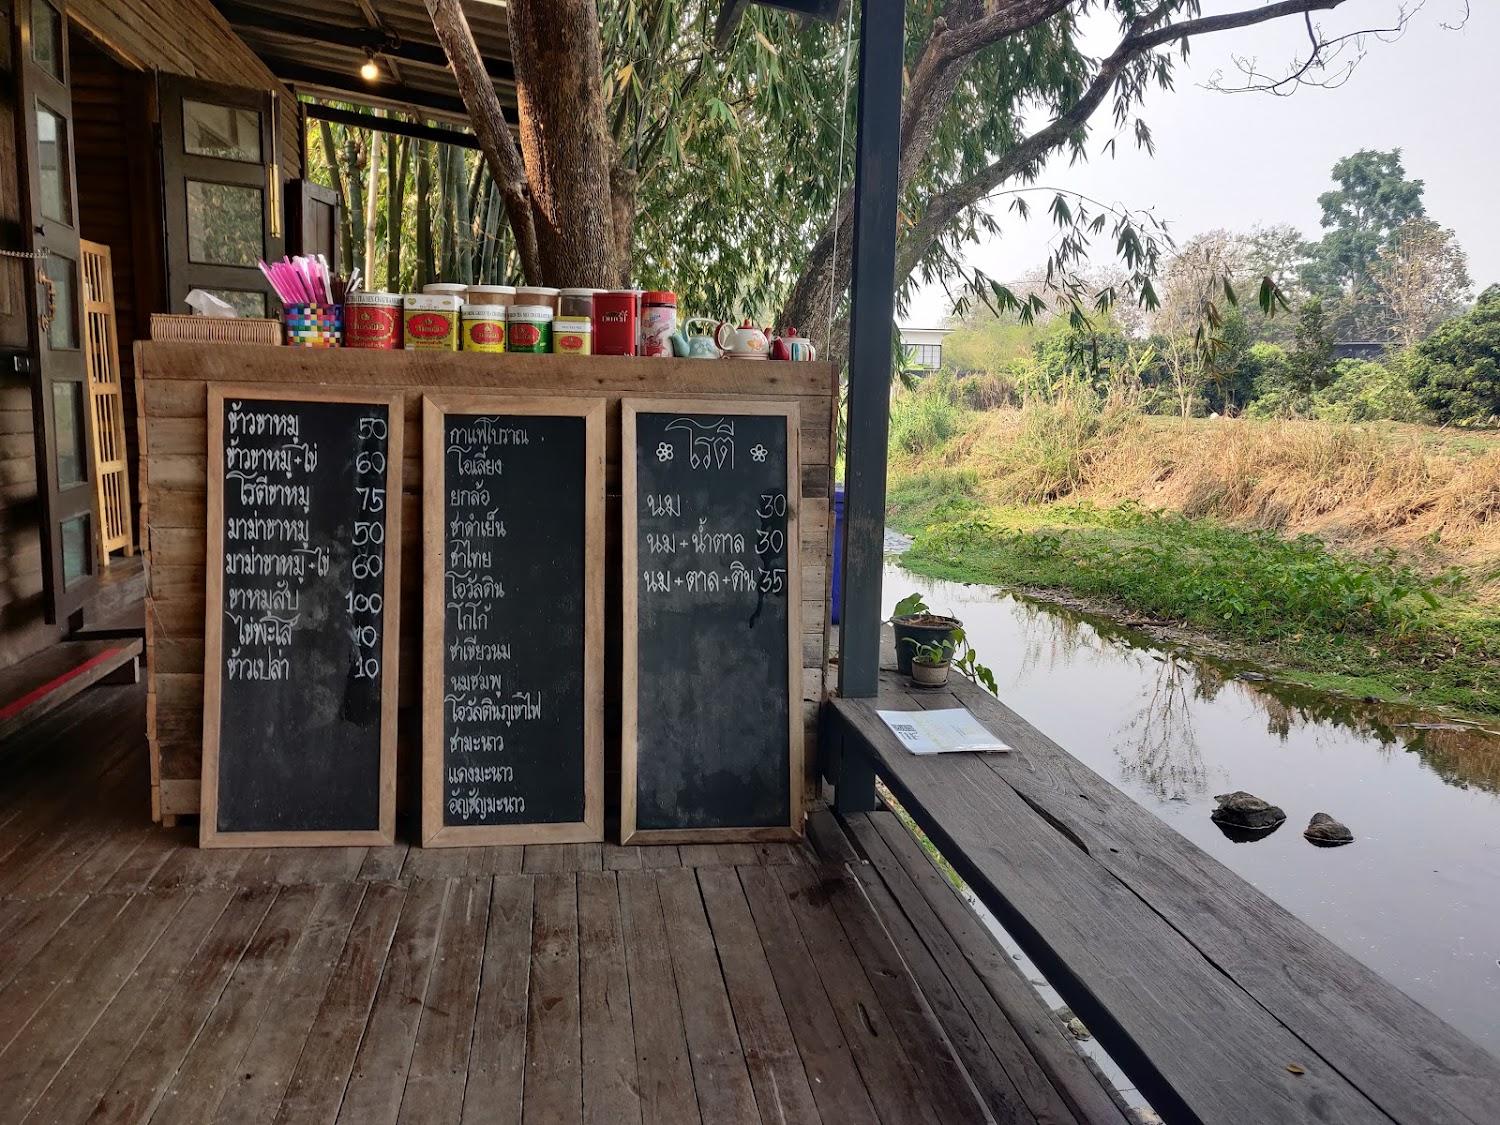 ข้าวขาหมู 50
ข้าวขาหมู+ไข่ 60
โรตีขาหมู 75
มาม่าขาหมู 50
มาม่าขาหมู+ไข่ 60
ขาหมูสับ 100
ไข่พะโล้ 10
ข้าวเปล่า 10
กาแฟโบราณ
โอเลี้ยง
ยกล้อ
ชาดำเย็น
ชาไทย
โอวัลติน
โกโก้
ชาเขียวนม
นมชมพู
โอวัลตินภูเขาไฟ
ชามะนาว
แดงมะนาว
อัญชัญมะนาว
โรตี
นม 30
นม+น้ำตาล 30
นม+ตาล+ติน 35